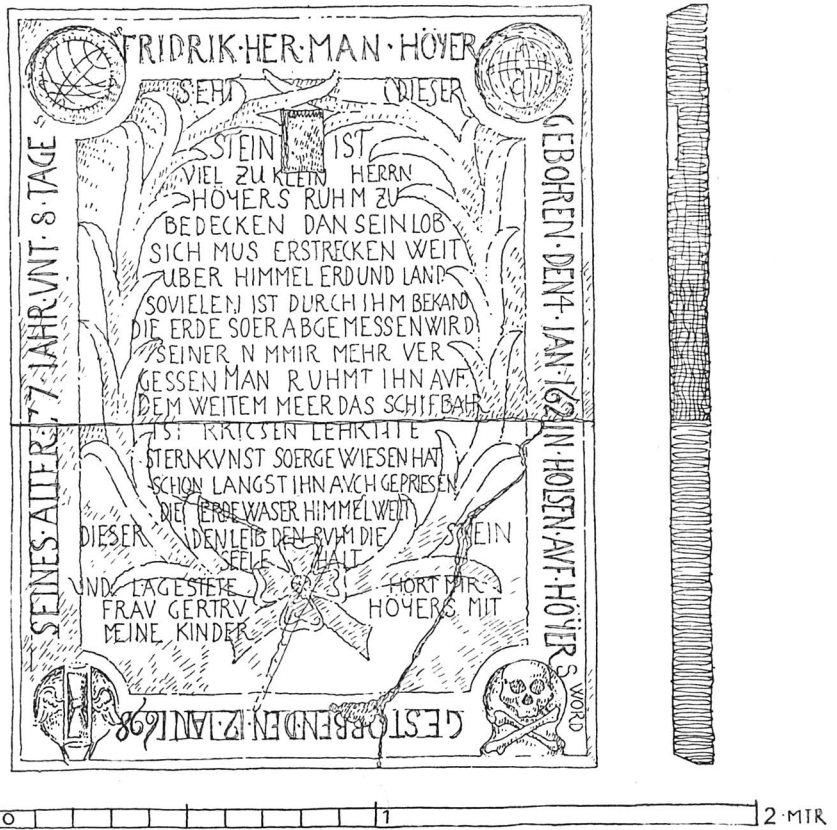 FRIDRIK·HER·MAN·HÖYER
GEBOHREN·DEN 4·IAN·162 IN·HOLSEN·AVF·HÖYERS WORD
GESTORBEN DEN 12 IAN 1698
SEINES·ALTER·77·IAHR·VNT·8·TAGE
SEHT DIESER
STEIN IST
VIEL ZU KLEIN HERRN
HÖYERS RUHM ZU
BEDECKEN DAN SEIN LOB
SICH MUS ERSTRECKEN WEIT
UBER HIMMEL ERD UND LAND
SOVIELEN IST DURCH IHM BEKAND
DIE ERDE SO ER ABGEMESSEN WIRD
SEINER N MMIR MEHR VER
GESSEN MAN RUHMT IHN AVF
DEM WEITEM MEER DAS SCHIFBAHR
IST
STERNKVNST SO ER GEWIESEN HAT
SCHON LANGST IHN AVCH GEPRIESEN
DIE ERDE WASER HIMMEL WELT
DIESER DEN LEIB DEN RVHM DIE STEIN
SEELE HALT
UND LAGESTETE HORT MIR
FRAV GERTRV HÖYERS MIT
MEINE KINDER
0 1 2·MTR